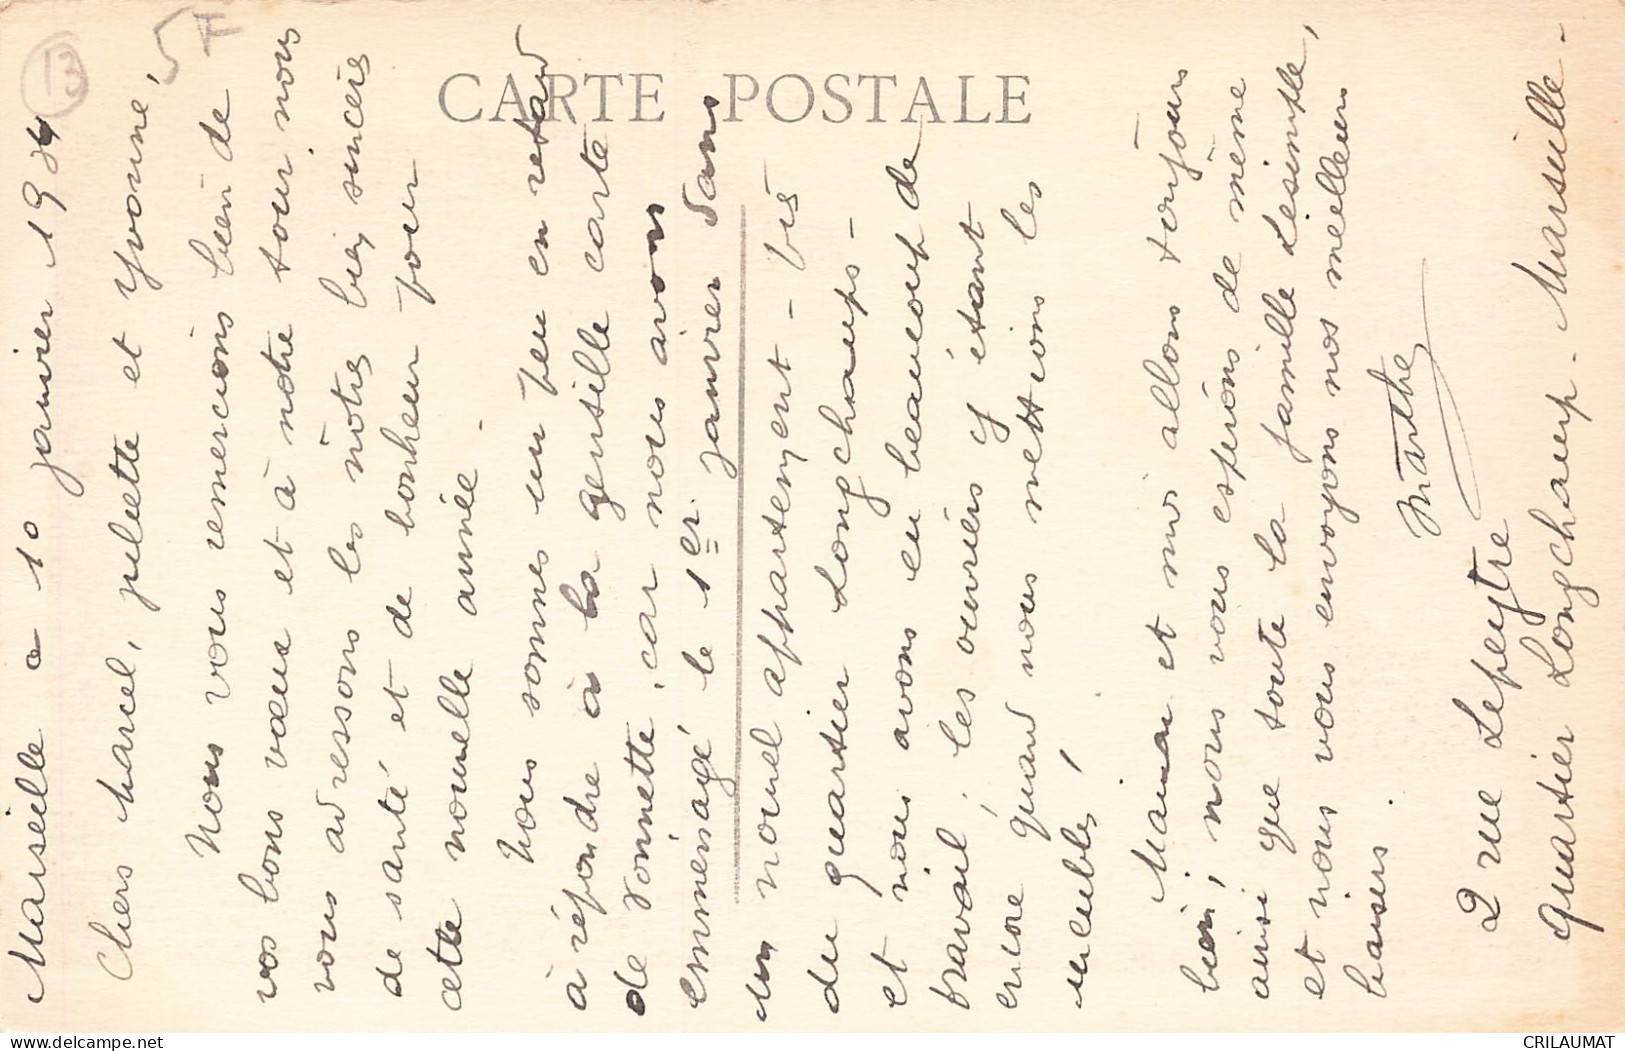 CARTE POSTALE
13
5F
Marseille a 10 janvier 1934
Chers Marcel, juliette et Yvonne,
Nous vous remercions bien de
vos bons vœux et à notre tour nous
vous adressons les nôtres bien sincères
de santé et de bonheur pour
cette nouvelle année.
Nous sommes un peu en retard
à répondre à la gentille carte
de Nonnette, car nous avons
emménagé le 1er janvier dans
un nouvel appartement - bis
du quartier Longchamps -
et nous avons eu beaucoup de
travail, les ouvriers y étant
encore quand nous mettions les
meubles,
Maman et moi allons toujours
bien, nous vous espérons de même
ainsi que toute la famille Lesimple,
et nous vous envoyons nos meilleurs
baisers.
Marthe
2 rue Lepeytre
Quartier Longchamp. Marseille -
www.delcampe.net
CRILAUMAT